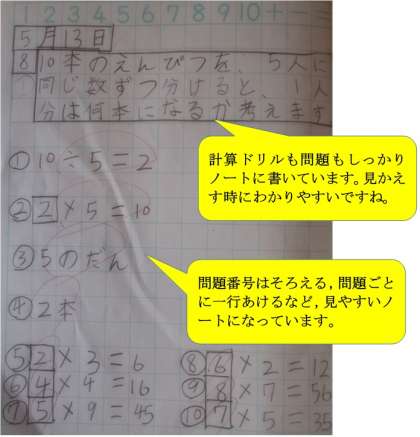 1 2 3 4 5 6 7 8 9 10 + 一 二 三
5月13日
8 10本のえんぴつを、5人に
同じ数ずつ分けると、1人
分は何本になるか考えます
①10÷5=2
②2×5=10
③5のだん
④2本
⑤2×3=6
⑥4×4=16
⑦5×9=45
⑧6×2=12
⑨8×7=56
⑩7×5=35
計算ドリルも問題もしっかり
ノートに書いています。見かえ
す時にわかりやすいですね。
問題番号はそろえる,問題ごと
に一行あけるなど,見やすいノ
ートになっています。